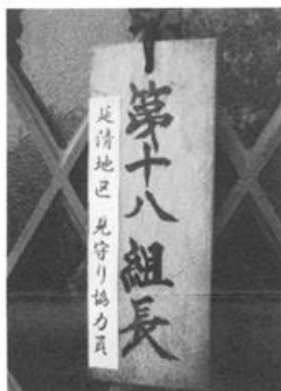 第十八組長
延清地区 見守り協力員